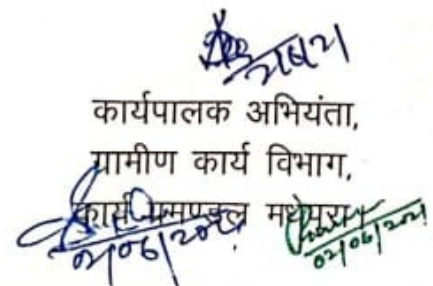 2/6/21
कार्यपालक अभियंता,
ग्रामीण कार्य विभाग,
कार्य प्रमण्डल मधेपुरा
02/06/2021 02/06/2021